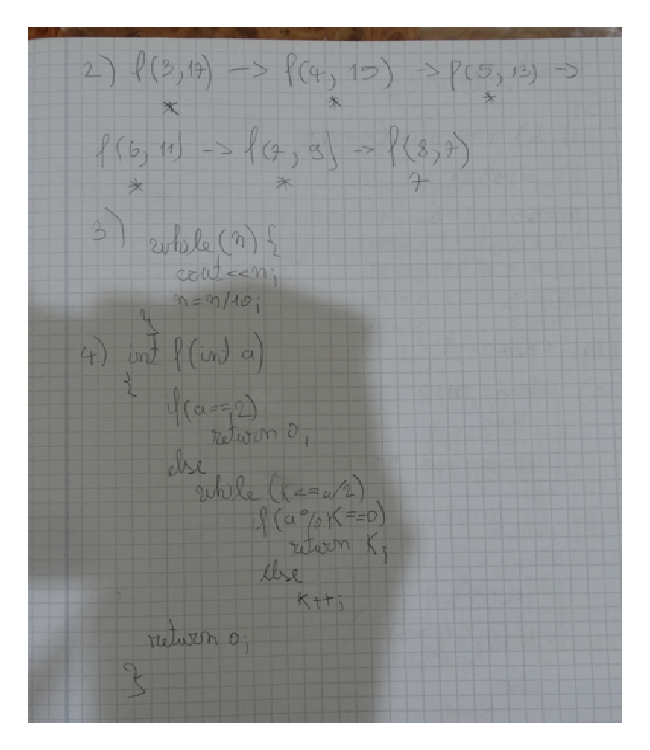 2) f(3,17) -> f(4, 15) -> f(5, 13) ->
* * *
f(6, 11) -> f(7, 9) -> f(8,7)
* * 7
3) while(n) {
cout<<n;
n=n/10;
}
4) int f(int a)
{
if(a==2)
return 0;
else
while (K<=a/2)
if(a%K==0)
return K;
else
K++;
return 0;
}